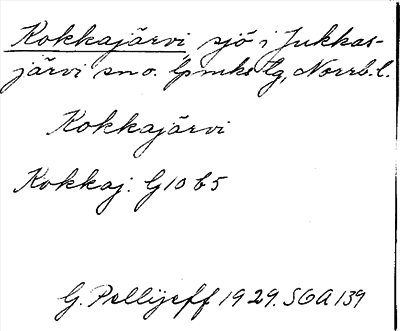 Kokkajärvi, sjö i Jukkas-
järvi sn o. lpmks lg, Norrb. l.
Kokkajärvi
Kokkaj: G10 b5
G. Pellijeff 1929. SOA 139